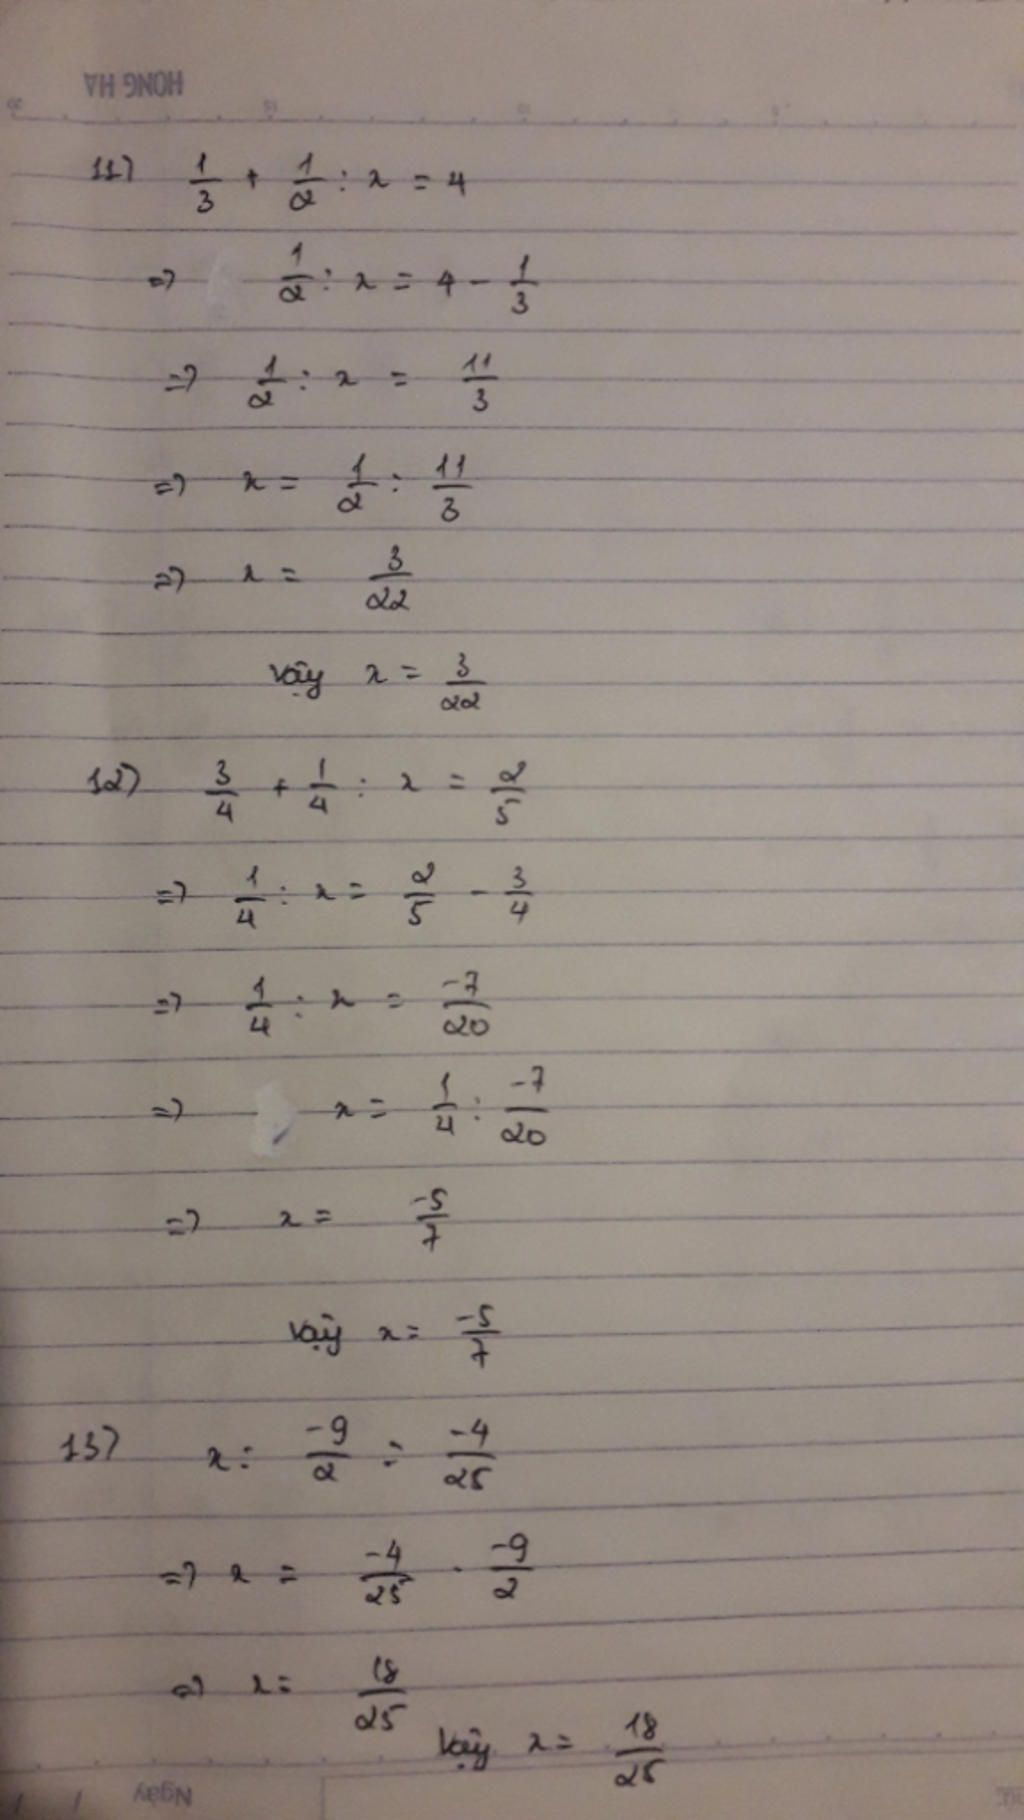 HONG HA
11) 1/3 + 1/2 : x = 4
=> 1/2 : x = 4 - 1/3
=> 1/2 : x = 11/3
=> x = 1/2 : 11/3
=> x = 3/22
Vậy x = 3/22
12) 3/4 + 1/4 : x = 2/5
=> 1/4 : x = 2/5 - 3/4
=> 1/4 : x = -7/20
=> x = 1/4 : -7/20
=> x = -5/7
Vậy x = -5/7
13) x : -9/2 = -4/25
=> x = -4/25 . -9/2
=> x = 18/25
Vậy x = 18/25
Ngày / /